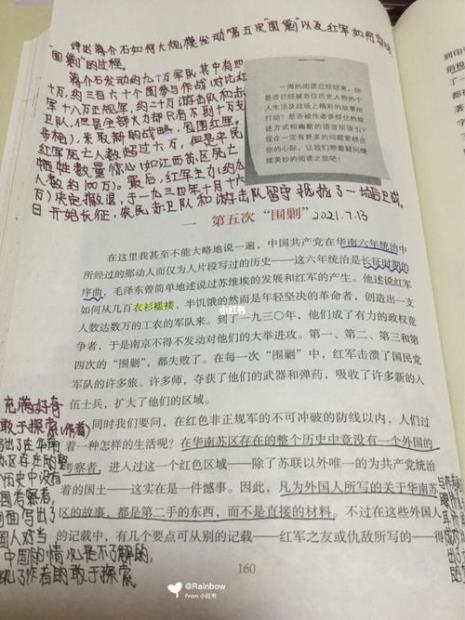 讲述蒋介石如何大规模发动第五次"围剿"以及红军如何
"围剿"的过程。
蒋介石发动约九十万军队其中有四
十万,约三百六十个团参与作战(对比红
军十八万正规军,约二十万游击队和赤
卫队,但是全部火力却只有不到十万支
步枪),采取新的战略,包围红军,
红军死亡人数超过六万,但是平民
牺牲数量惊心(如江西苏区死亡
人数约100万)。最后,红军主力(约九
万)决定撤退,于一九三四年十月十六
日开始长征,农民赤卫队和游击队留守抵抗了
一周的阅读已经结束,你
是否已经被各位历史人物的个
人生活及战场上精彩的故事所
打动?是否被作者多样化的叙
述方式和幽默的语言所吸引?
现在一定有更多的问题萦绕在
你的心际,让我们带着疑问继
续美妙的阅读之旅吧!
一 第五次"围剿" 2021.7.13
在这里我甚至不能大略地说一遍,中国共产党在华南六年统治中
所经过的那动人而仅为人片段写过的历史——这六年统治是长征时期的
序曲。毛泽东曾简单地述说过苏维埃的发展和红军的产生。他述说红军
如何从几百衣衫褴褛、半饥饿的然而是年轻坚决的革命者,创造出一支
人数达数万的工农的军队来。到了一九三〇年,他们成了有力的政权竞
争者,于是南京不得不发动对他们的大举进攻。第一、第二、第三和第
四次的"围剿",都失败了。在每一次"围剿"中,红军击溃了国民党
军队的许多旅、许多师,夺获了他们的武器和弹药,吸收了许多新的人
伍士兵,扩大了他们的区域。
同时我们要问,在红色非正规军的不可冲破的防线以内,人们过
着一种怎样的生活呢?在华南苏区存在的整个历史中竟没有一个外国的
考察者,进入过这一个红色区域——除了苏联以外唯一的为共产党统治
着的国土——这实在是一件憾事。因此,凡为外国人所写的关于华南苏
区的故事,都是第二手的东西,而不是直接的材料。不过在这些外国人
的记载中,有几个要点可从别的记载——红军之友或仇敌所写的——得
充满好奇
敢于探索(作者)
写出了在华南
苏区存在的整
历史中没有
国考察者,
侧面写出了
国人对当
中国的情况是不了解的,
了作者的敢于探索
160
小红书
@Rainbow
From 小红书